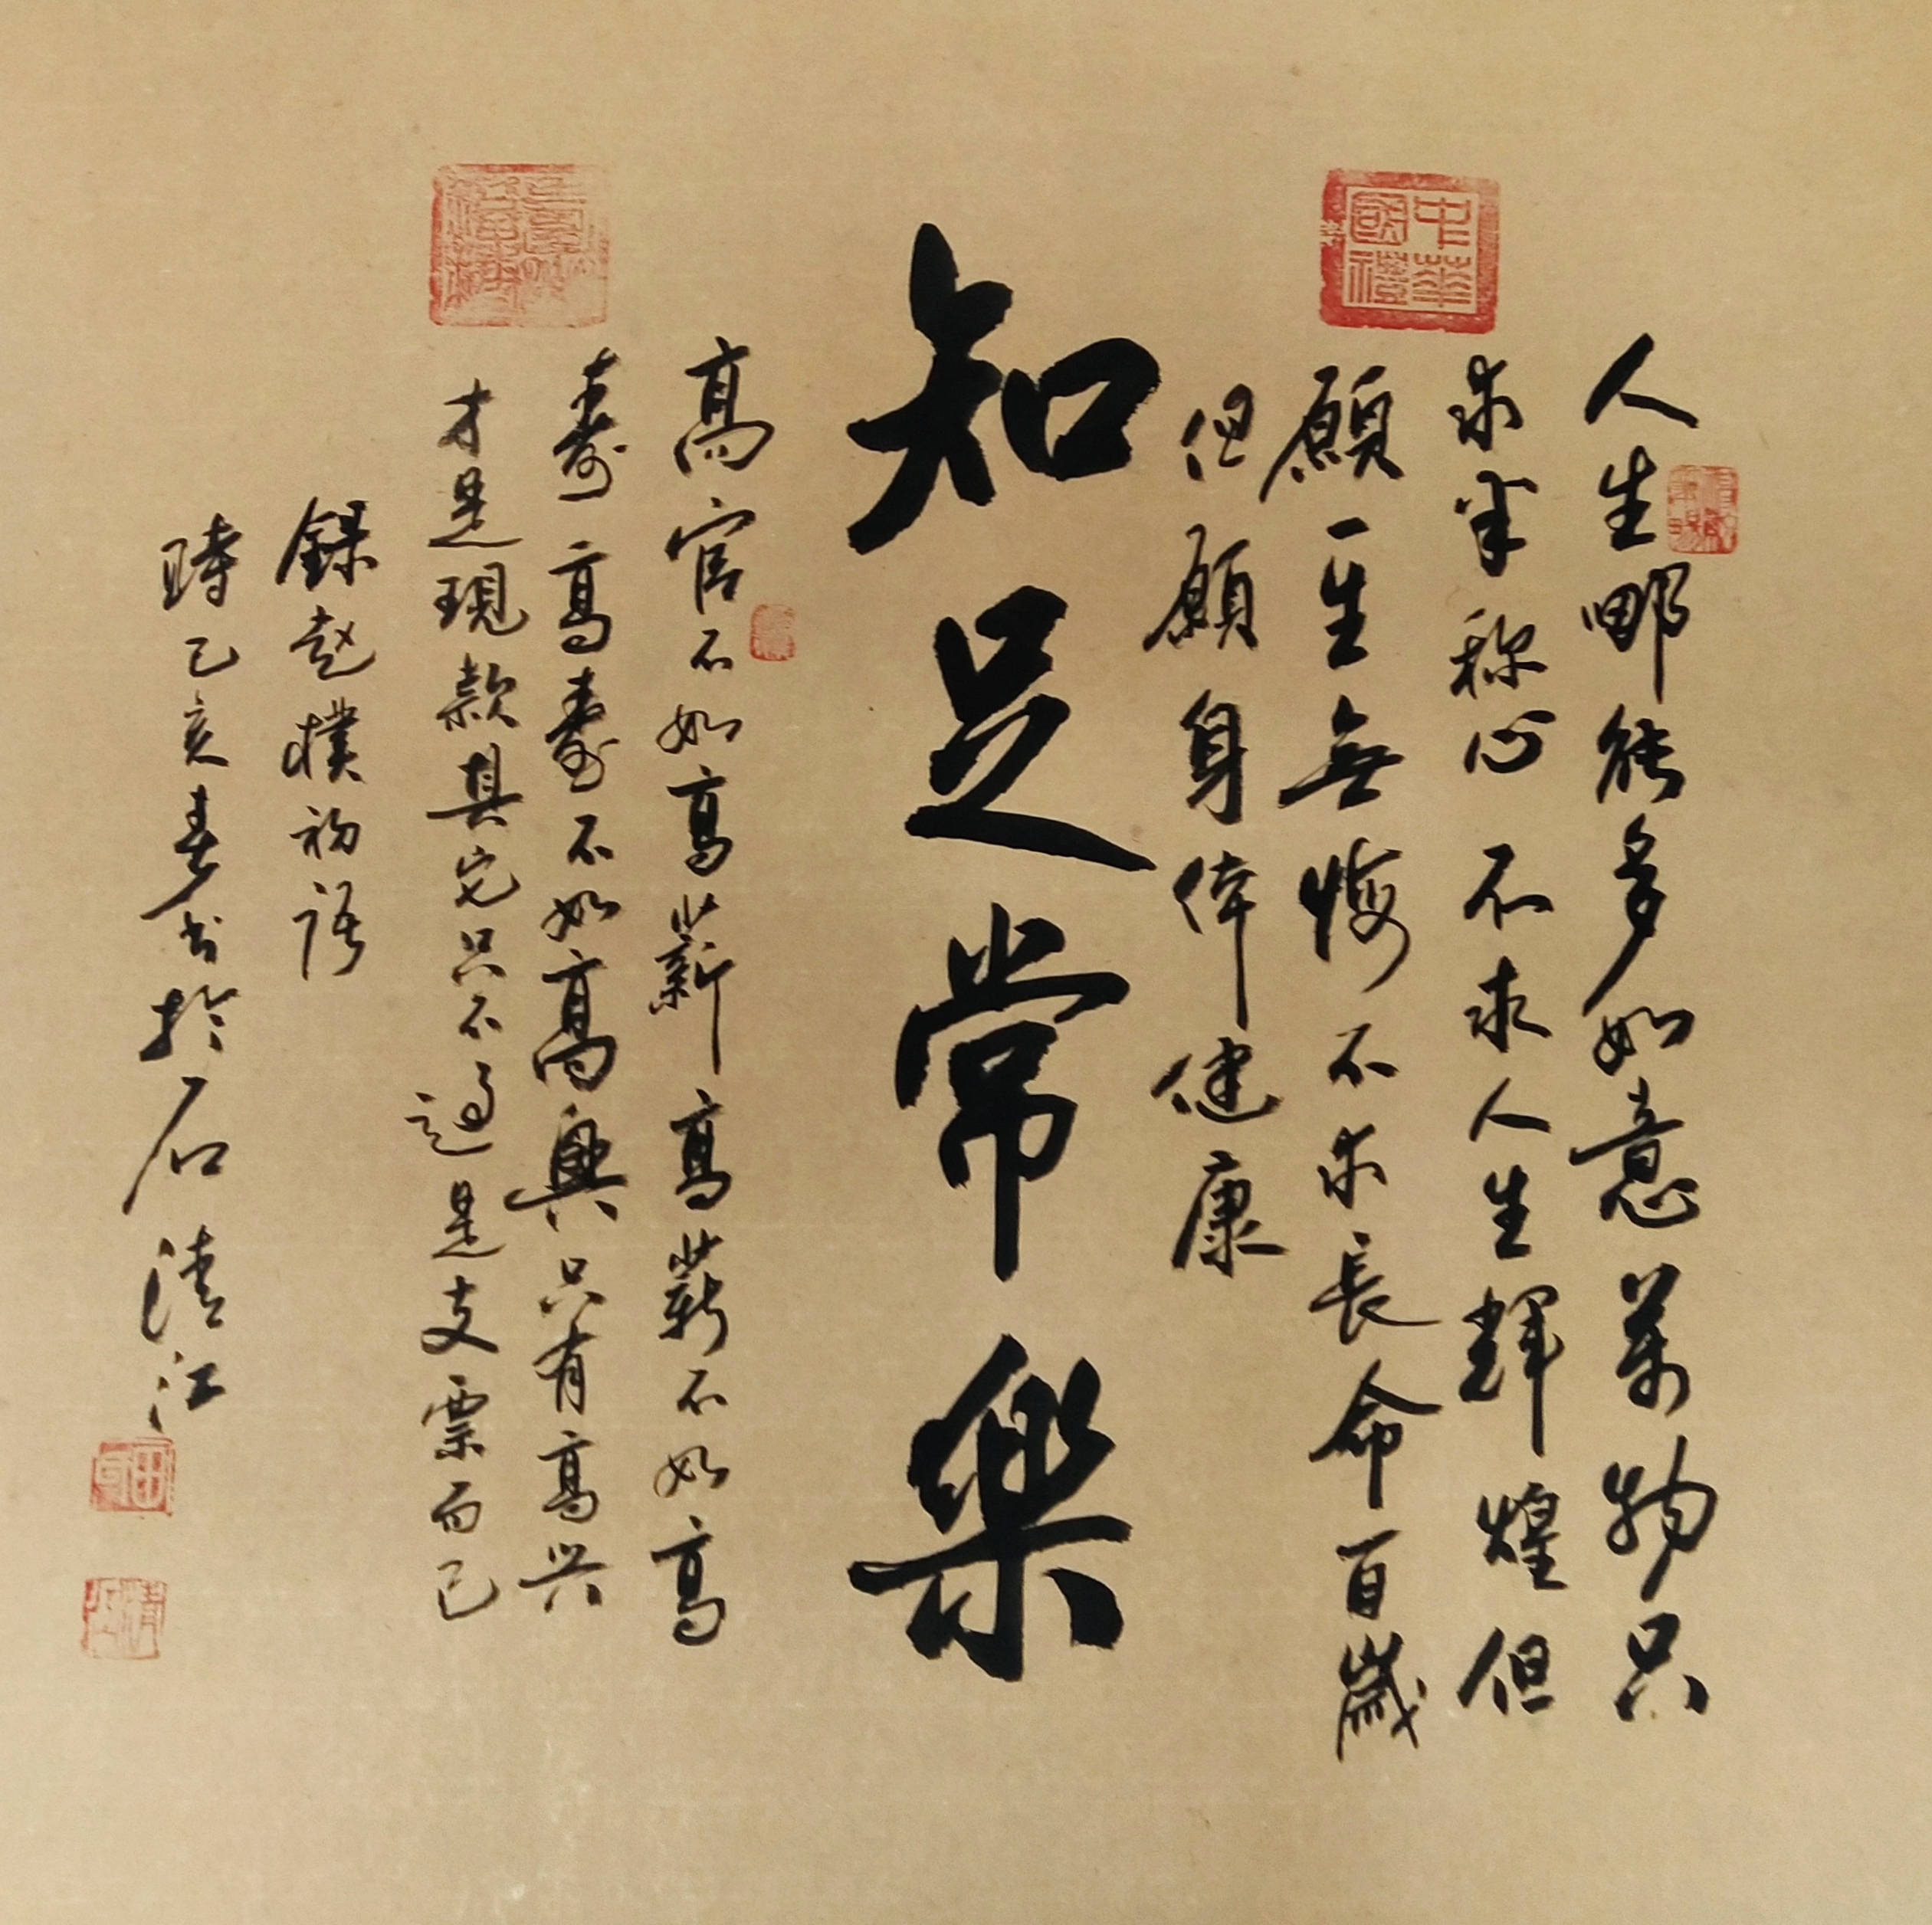 人生哪能多如意萬物只
求半称心不求人生輝煌但
願一生無悔不求長命百歲
但願身体健康
知足常樂
高官不如高薪高薪不如高
壽高壽不如高興只有高兴
才是現款其它只不過是支票而已
錄赵樸初语
時己亥春书於石清江
中華國禮